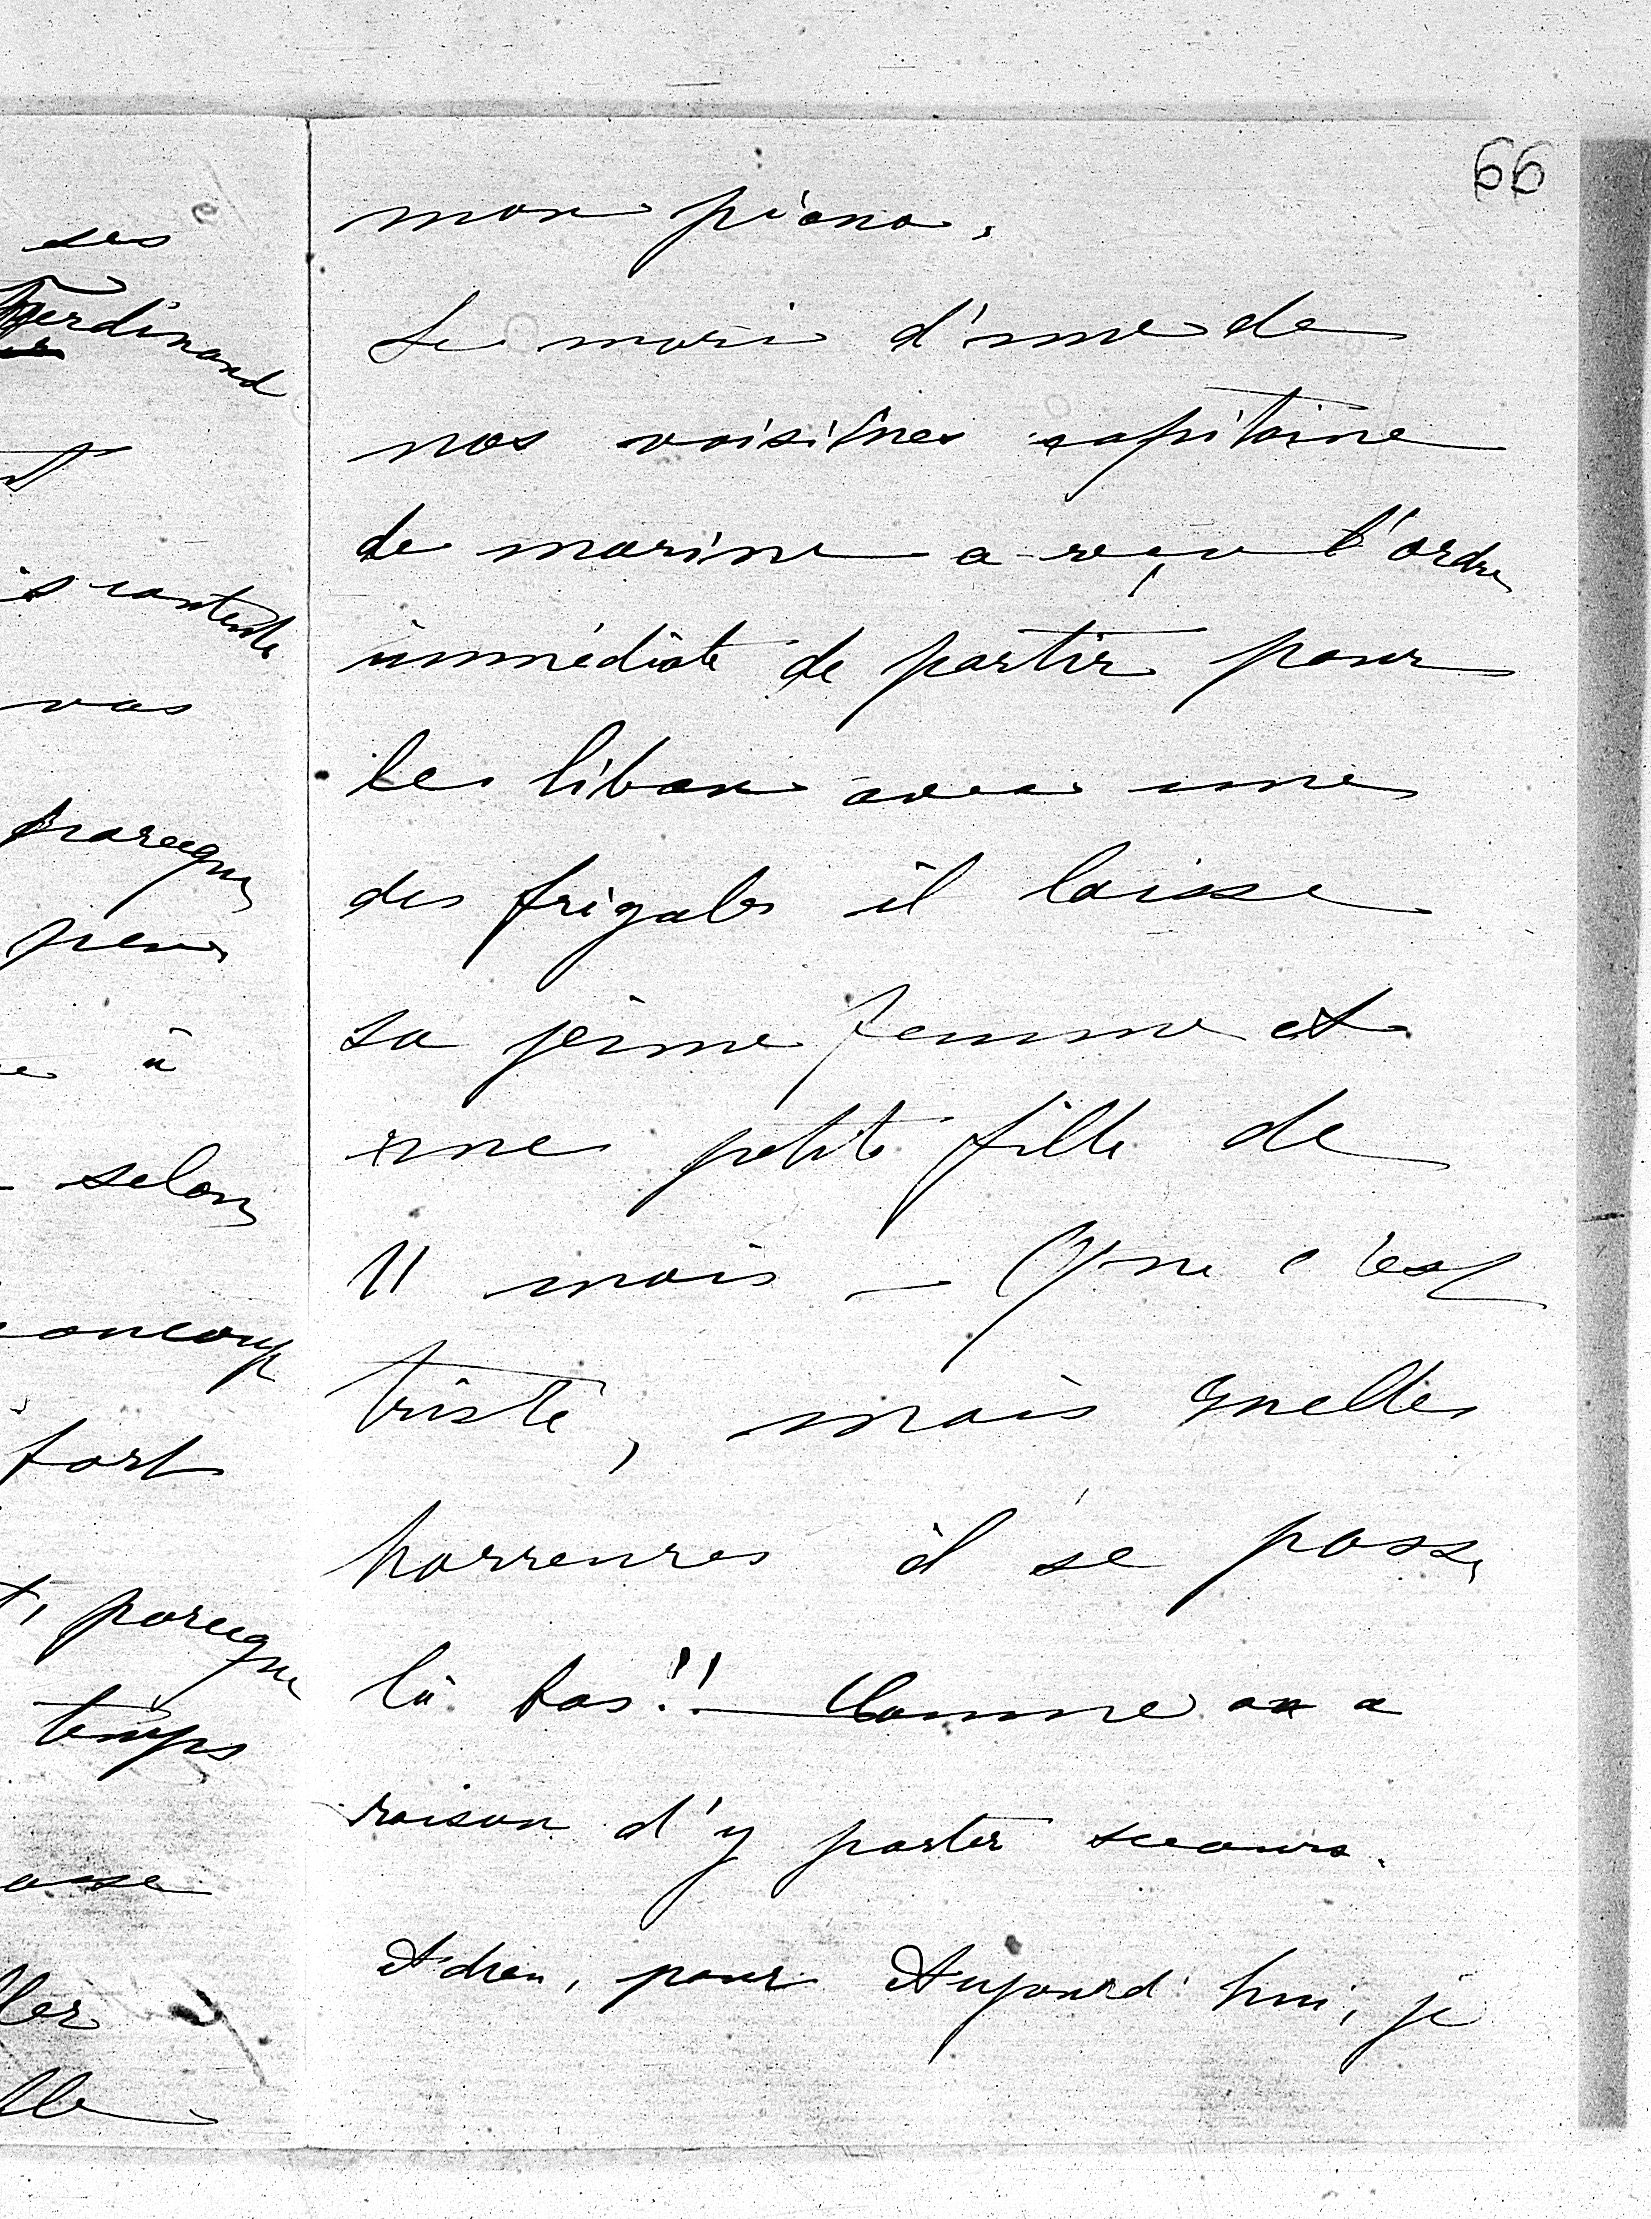 66
ses
Ferdinand
contente
vas
parceque
peu
à
selon
fort
parceque
temps
mon piano.
Le mari d'une de
nos voisines capitaine
de marine a reçu l'ordre
immédiate de partir pour
le liban avec une
des frigates il laisse
sa jeune femme et
une petite fille de
11 mois – Que c'est
triste, mais quelles
horreures il se passe
là bas!! – Comme on a
raison d'y porter secours.
Adieu, pour Aujourd'hui, je